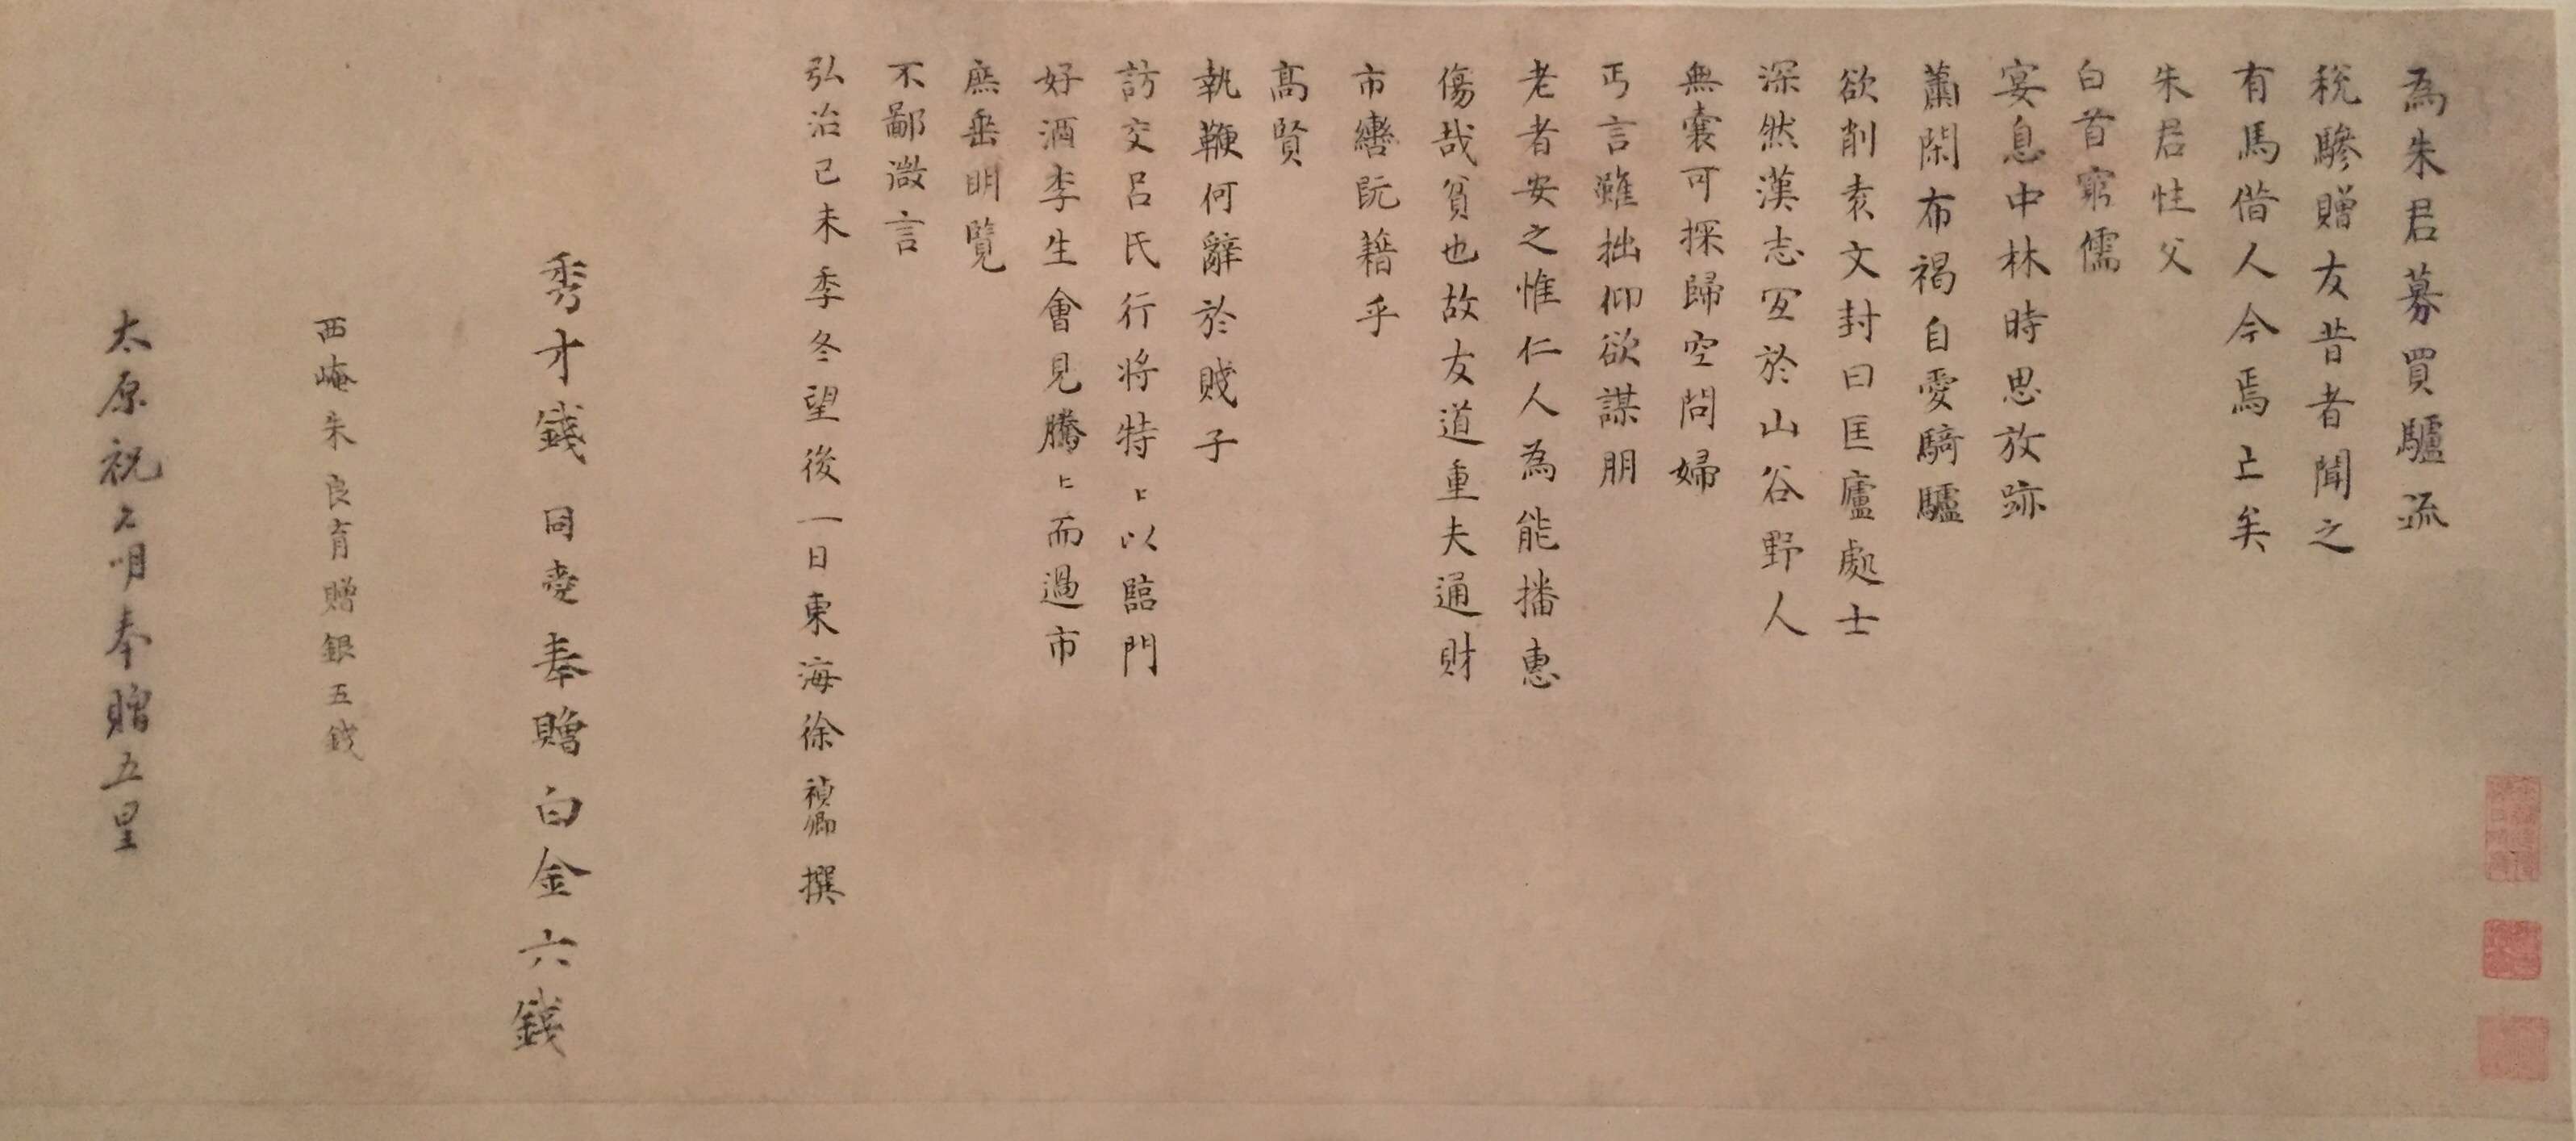 為朱君募買驢疏
稅驂贈友昔者聞之
有馬借人今焉亡矣
朱君性父
白首窮儒
宴息中林時思放跡
蕭閑布褐自愛騎驢
欲削袁文封曰匡廬處士
深然漢志宜於山谷野人
無囊可探歸空問婦
丐言雖拙仰欲謀朋
老者安之惟仁人為能播惠
傷哉貧也故友道重夫通財
市轡阮籍乎
高賢
執鞭何辭於賤子
訪交呂氏行將特〻以臨門
好酒李生會見騰〻而過市
庶垂明覽
不鄙微言
弘治己未季冬望後一日東海徐禎卿撰
秀才錢同愛奉贈白金六錢
西崦朱良育贈銀五錢
太原祝允明奉贈五星